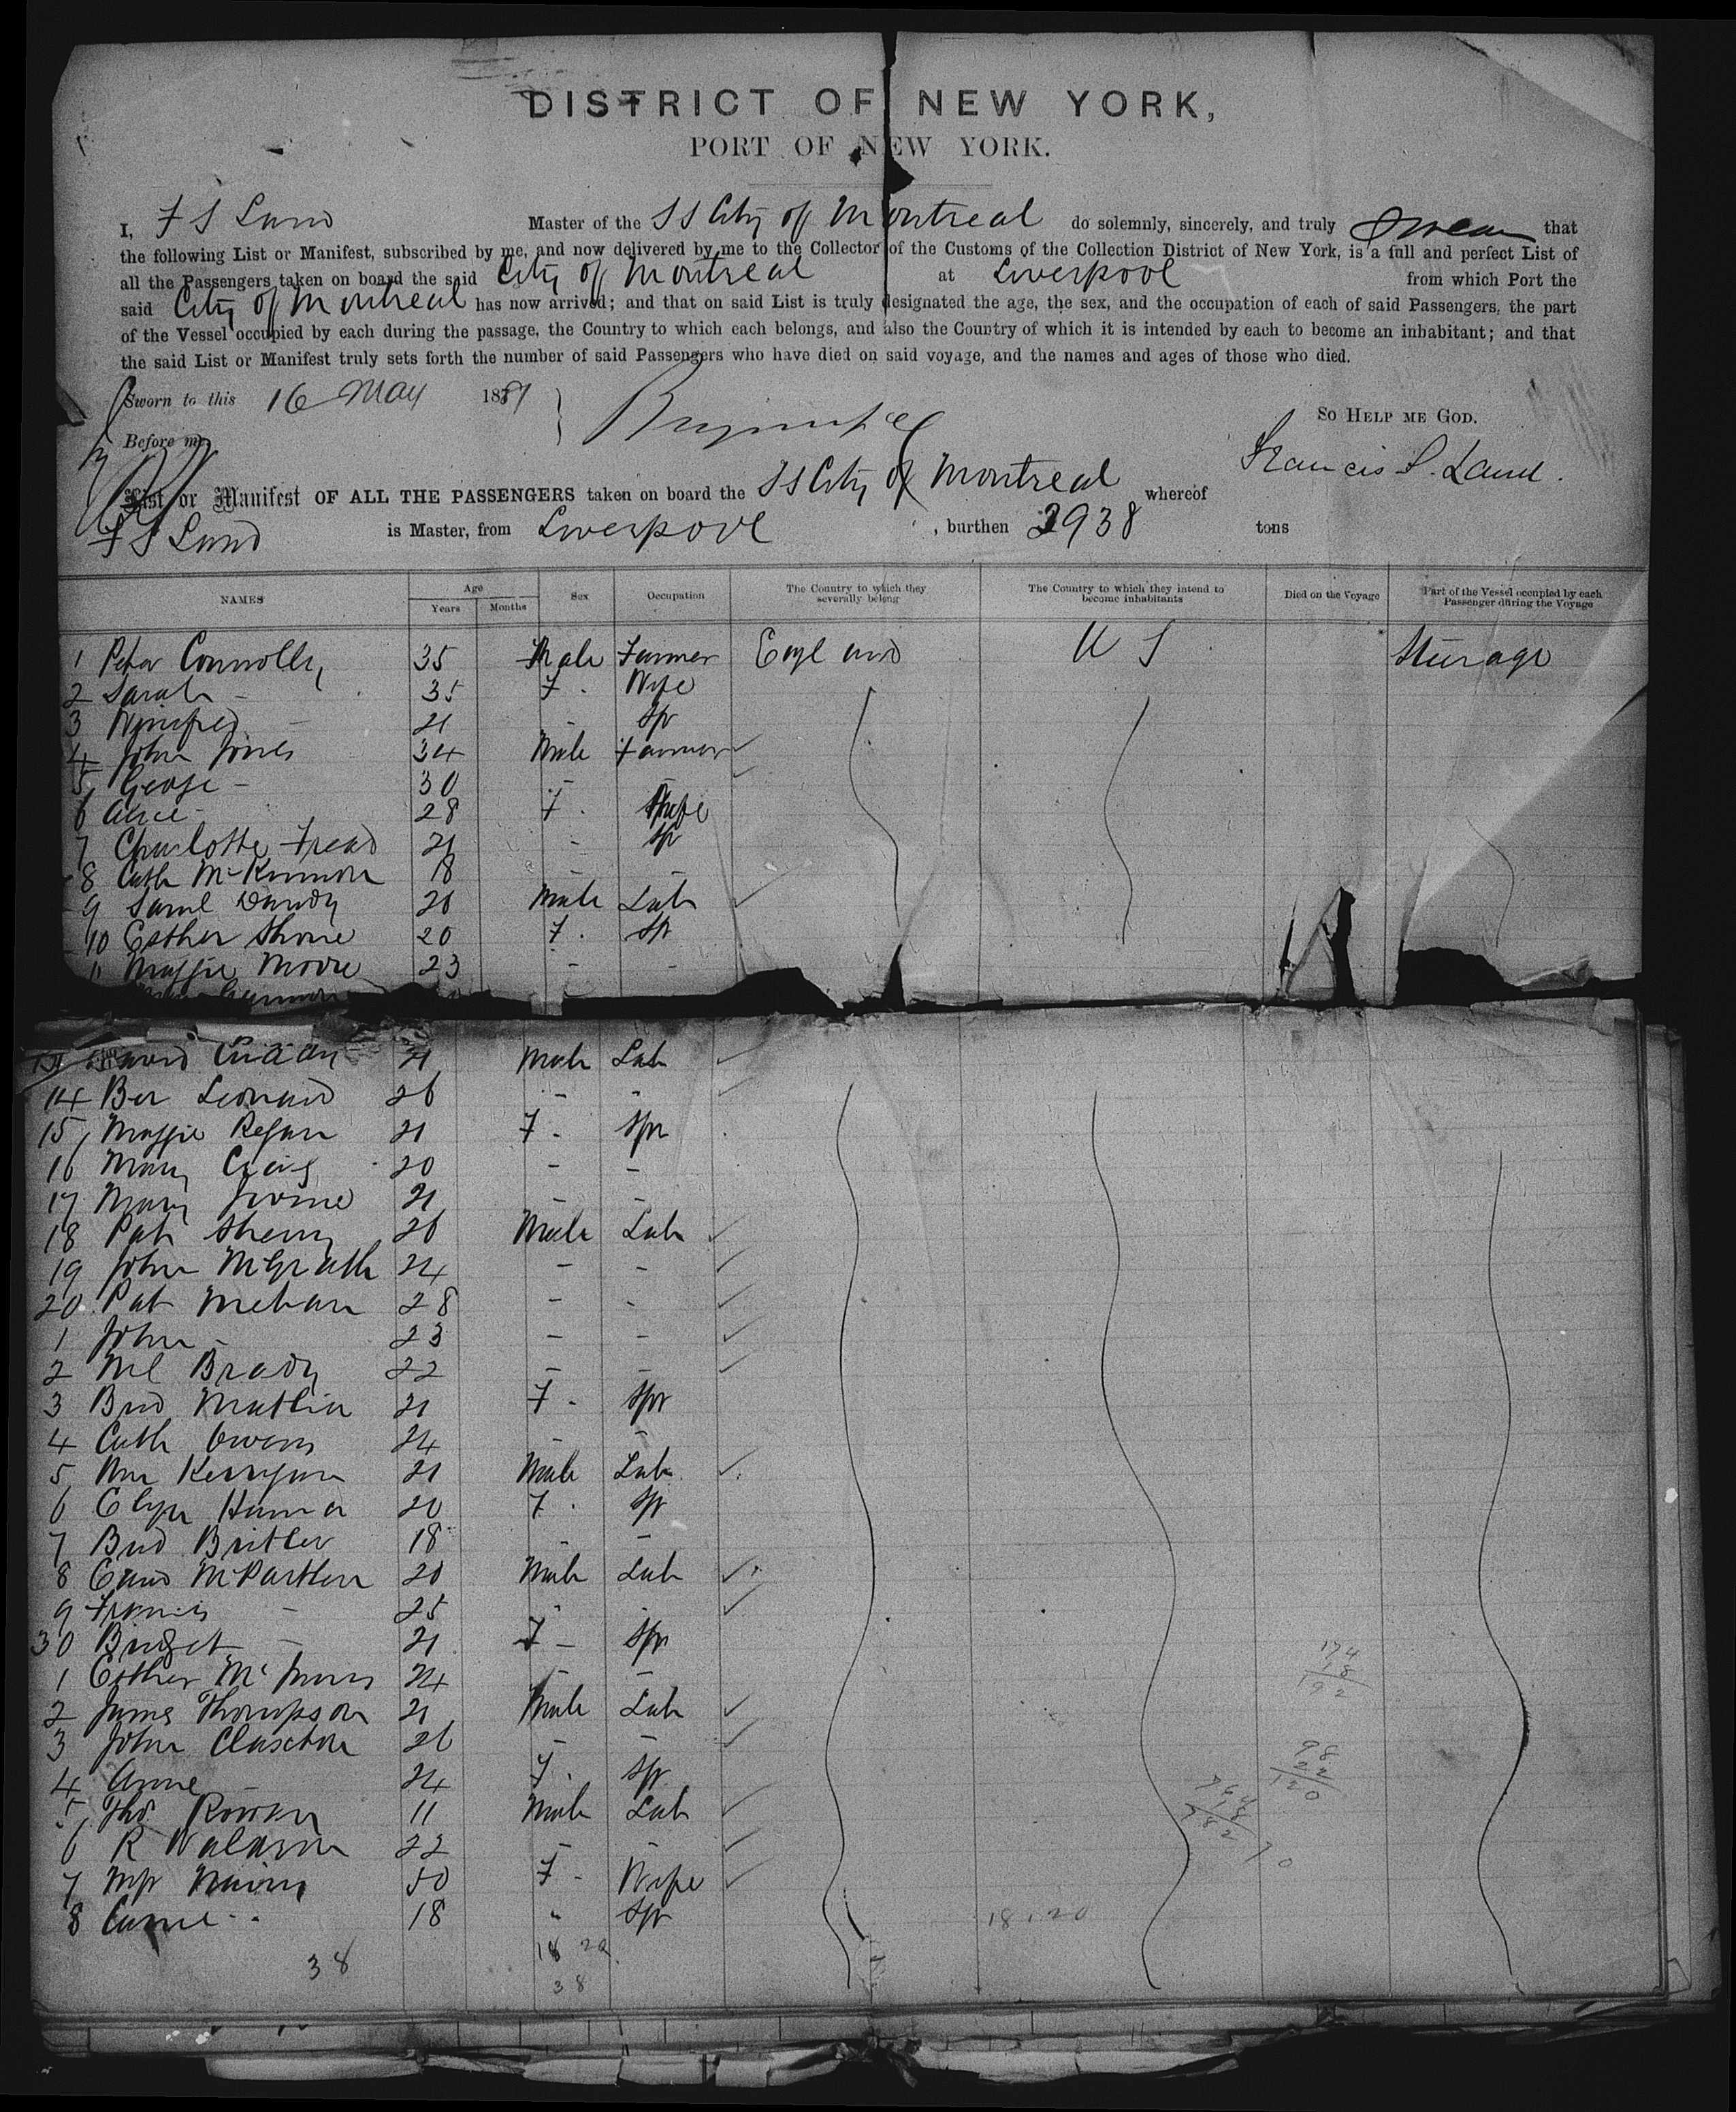 DISTRICT OF NEW YORK,
PORT OF NEW YORK.
I, F S Land Master of the SS City of Montreal do solemnly, sincerely, and truly swear that
the following List or Manifest, subscribed by me, and now delivered by me to the Collector of the Customs of the Collection District of New York, is a full and perfect List of
all the Passengers taken on board the said City of Montreal at Liverpool from which Port the
said City of Montreal has now arrived; and that on said List is truly designated the age, the sex, and the occupation of each of said Passengers, the part
of the Vessel occupied by each during the passage, the Country to which each belongs, and also the Country of which it is intended by each to become an inhabitant; and that
the said List or Manifest truly sets forth the number of said Passengers who have died on said voyage, and the names and ages of those who died.
Sworn to this 16 May 1881
So HELP ME GOD.
Before me
Francis S. Land.
List or Manifest OF ALL THE PASSENGERS taken on board the SS City of Montreal whereof
F S Land is Master, from Liverpool , burthen 2938 tons
NAMES Age Years Months Sex Occupation The Country to which they severally belong The Country to which they intend to become inhabitants Died on the Voyage Part of the Vessel occupied by each Passenger during the Voyage
1 Peter Connolly 35 Male Farmer England U S Steerage
2 Sarah - 35 F. Wife
3 Winifred - 21 - Spr
4 John Jones 34 Male Farmer
5 George - 30 - -
6 Alice - 28 F. Wife
7 Charlotte Fread 21 - Spr
8 Cath McKinnon 18 - -
9 Saml Dandy 21 Male Lab
10 Esther Shone 20 F. Spr
11 Maggie Moore 23 - -
13 David 21 Male Lab
14 Ber Leonard 26 - -
15 Maggie Regan 21 F. Spr
16 Mary Craig 20 - -
17 Mary Irvine 21 - -
18 Pat Sherry 26 Male Lab
19 John McGrath 24 - -
20 Pat Mehan 28 - -
1 John - 23 - -
2 Ml Brady 22 - -
3 Brid 21 F. Spr
4 Cath Owens 24 - -
5 Wm Kerrigan 21 Male Lab
6 20 F. Spr
7 Brid Butler 18 - -
8 McPartlen 20 Male Lab
9 Francis - 25 - -
30 Bridget - 21 F - Spr
1 Esther 24 - -
2 James Thompson 21 Male Lab
3 John Claxton 26 - -
4 Anne - 24 F. Spr
5 Thos Rowan 11 Male Lab
6 R Waldron 22 - -
7 50 F - Wife
8 18 " Spr
18 20
38
18 20
38
174
18
192
98
22
120
764
18
782